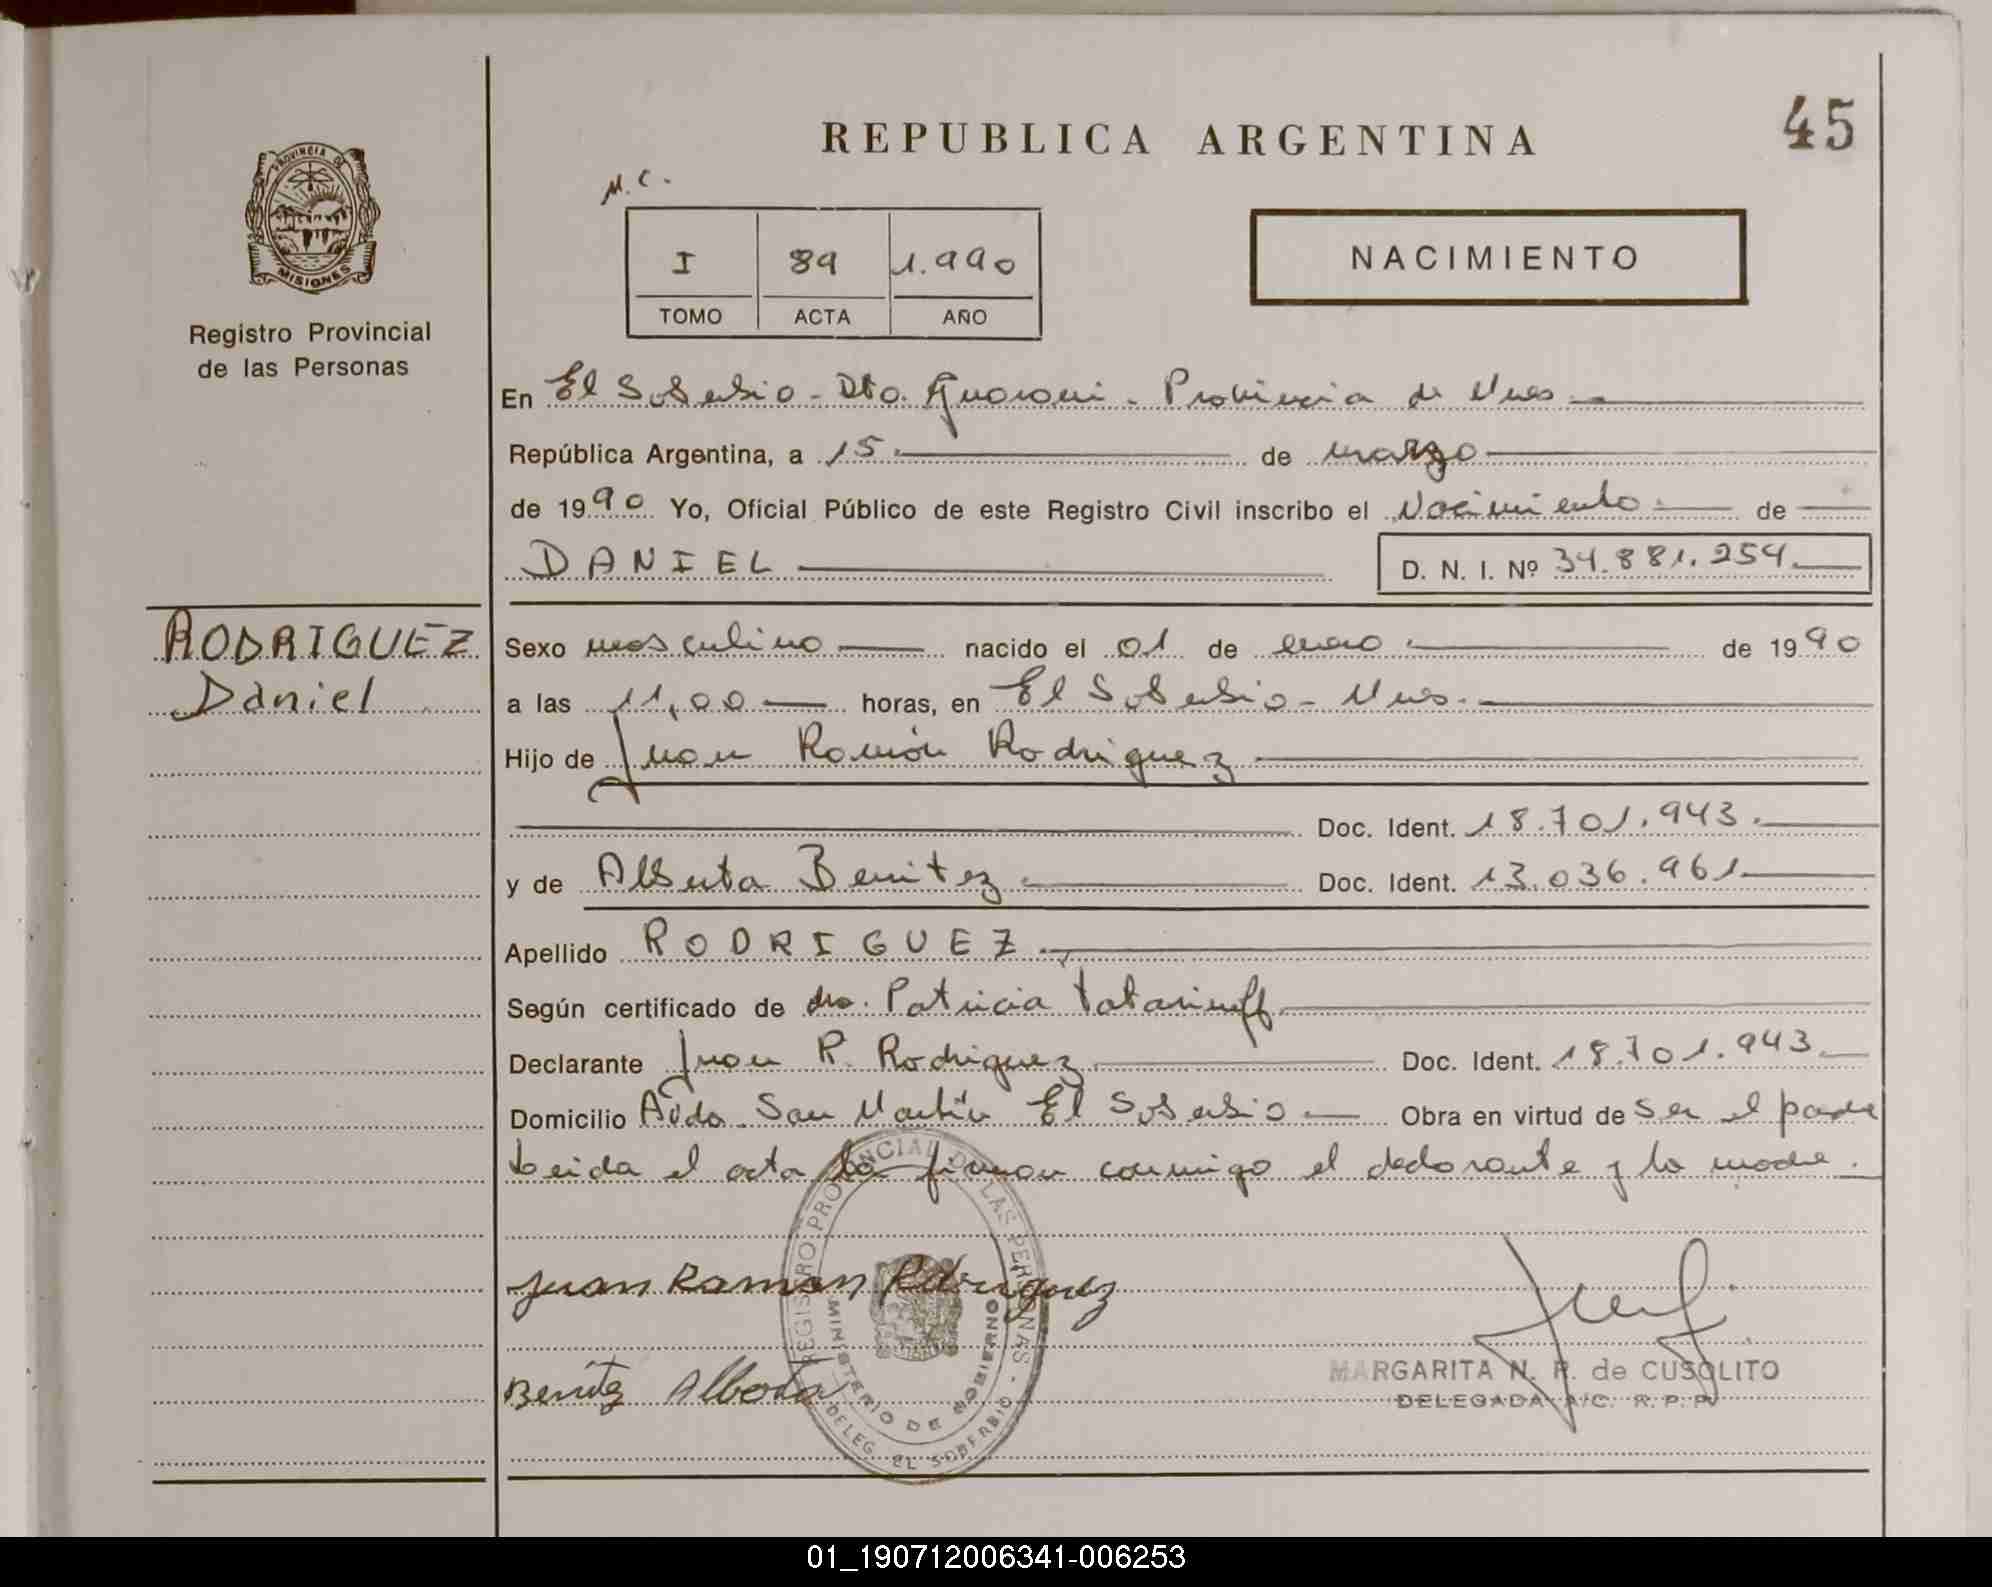 REPUBLICA ARGENTINA
45
PROVINCIA DE
MISIONES
Registro Provincial
de las Personas
M.C.
I 89 1.990
TOMO ACTA AÑO
NACIMIENTO
En El Soberbio - Dto. Guarani - Provincia de Mnes
República Argentina, a 15 de marzo
de 1990 Yo, Oficial Público de este Registro Civil inscribo el Nacimiento de
DANIEL D. N. I. Nº 34.881.254
RODRIGUEZ
Daniel
Sexo masculino nacido el 01 de enero de 1990
a las 11,00 horas, en El Soberbio - Mnes.
Hijo de Juan Ramón Rodriguez
Doc. Ident. 18.701.943.
y de Alberta Benitez Doc. Ident. 13.036.961
Apellido RODRIGUEZ
Según certificado de dra. Patricia Tatarinuff
Declarante Juan R. Rodriguez Doc. Ident. 18.701.943
Domicilio Avda. San Martín El Soberbio Obra en virtud de ser el padre
Leida el acta la firman conmigo el declarante y la madre.
Juan Ramon Rdriguez
Benitez Alberta
REGISTRO PROVINCIAL DE LAS PERSONAS -
MINISTERIO DE GOBIERNO
DELEG. EL SOBERBIO
MARGARITA N. R. de CUSOLITO
DELEGADA A/C. R.P.P.
01_190712006341-006253